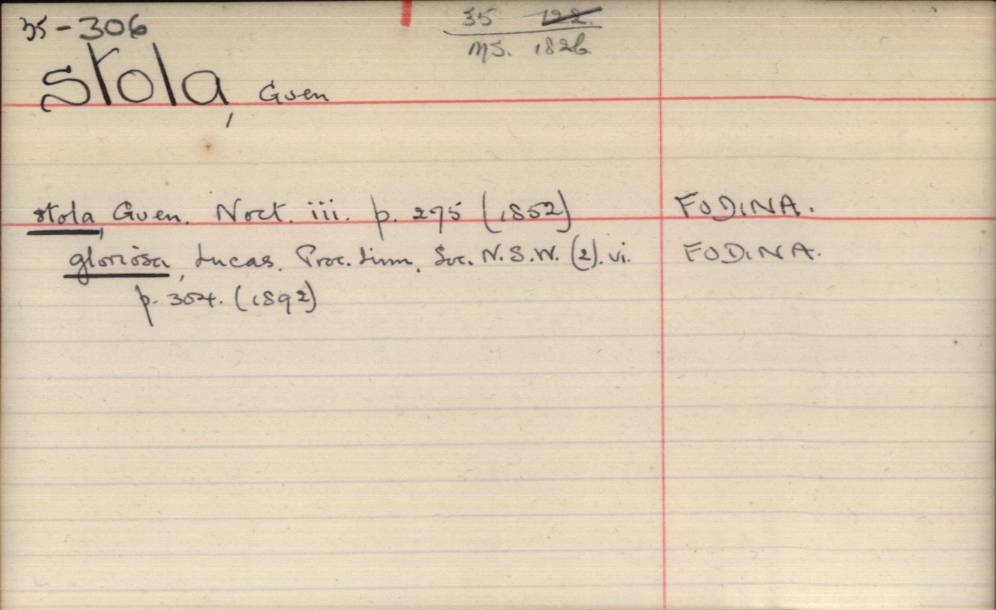 35-306
35 122.
MS. 1826
stola, Guen
stola, Guen. Noct. iii. p. 295 (1852) FODINA.
gloriosa, Lucas. Proc. Linn. Soc. N.S.W. (2). vi. FODINA.
p. 304. (1892)